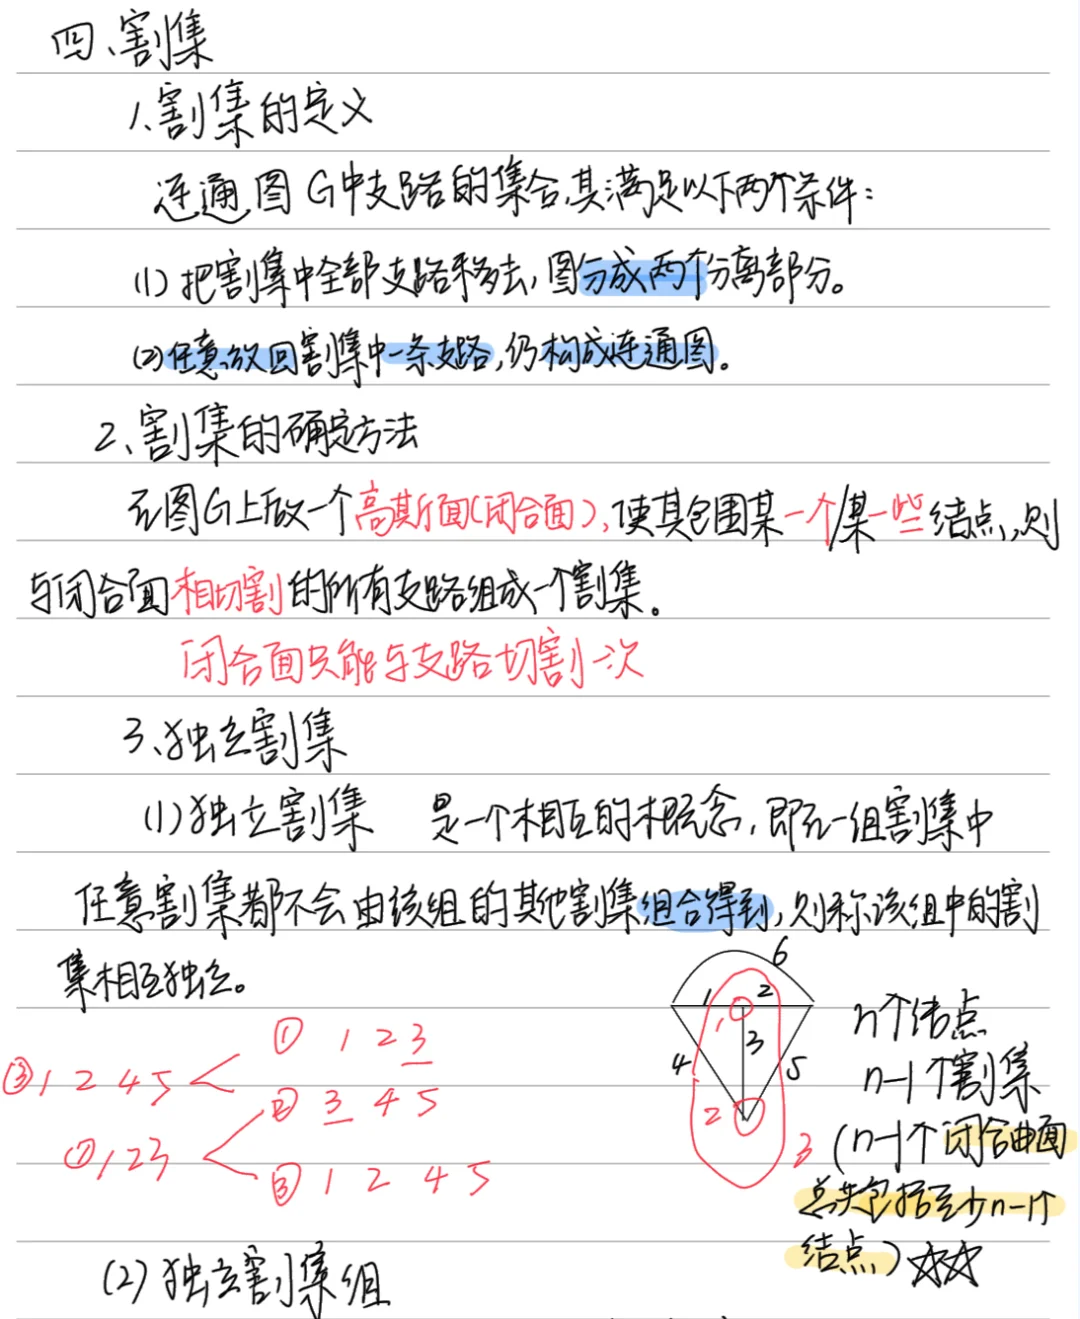 四、割集
1、割集的定义
连通图G中支路的集合,其满足以下两个条件:
(1) 把割集中全部支路移去,图分成两个分离部分。
(2)任意放回割集中一条支路,仍构成连通图。
2、割集的确定方法
在图G上做一个高斯面(闭合面),使其包围某一个/某一些结点,则
与闭合面相切割的所有支路组成一个割集。
闭合面只能与支路切割一次
3、独立割集
(1)独立割集 是一个相互的概念,即在一组割集中
任意割集都不会由该组的其他割集组合得到,则称该组中的割
集相互独立。
6
1 2
1
3
4 5
2
3
n个结点
n-1个割集
(n-1个闭合曲面
总共包括至少n-1个
结点)☆☆
① 1 2 3
③ 1 2 4 5 <
② 3 4 5
① 1 2 3 <
③ 1 2 4 5
(2)独立割集组